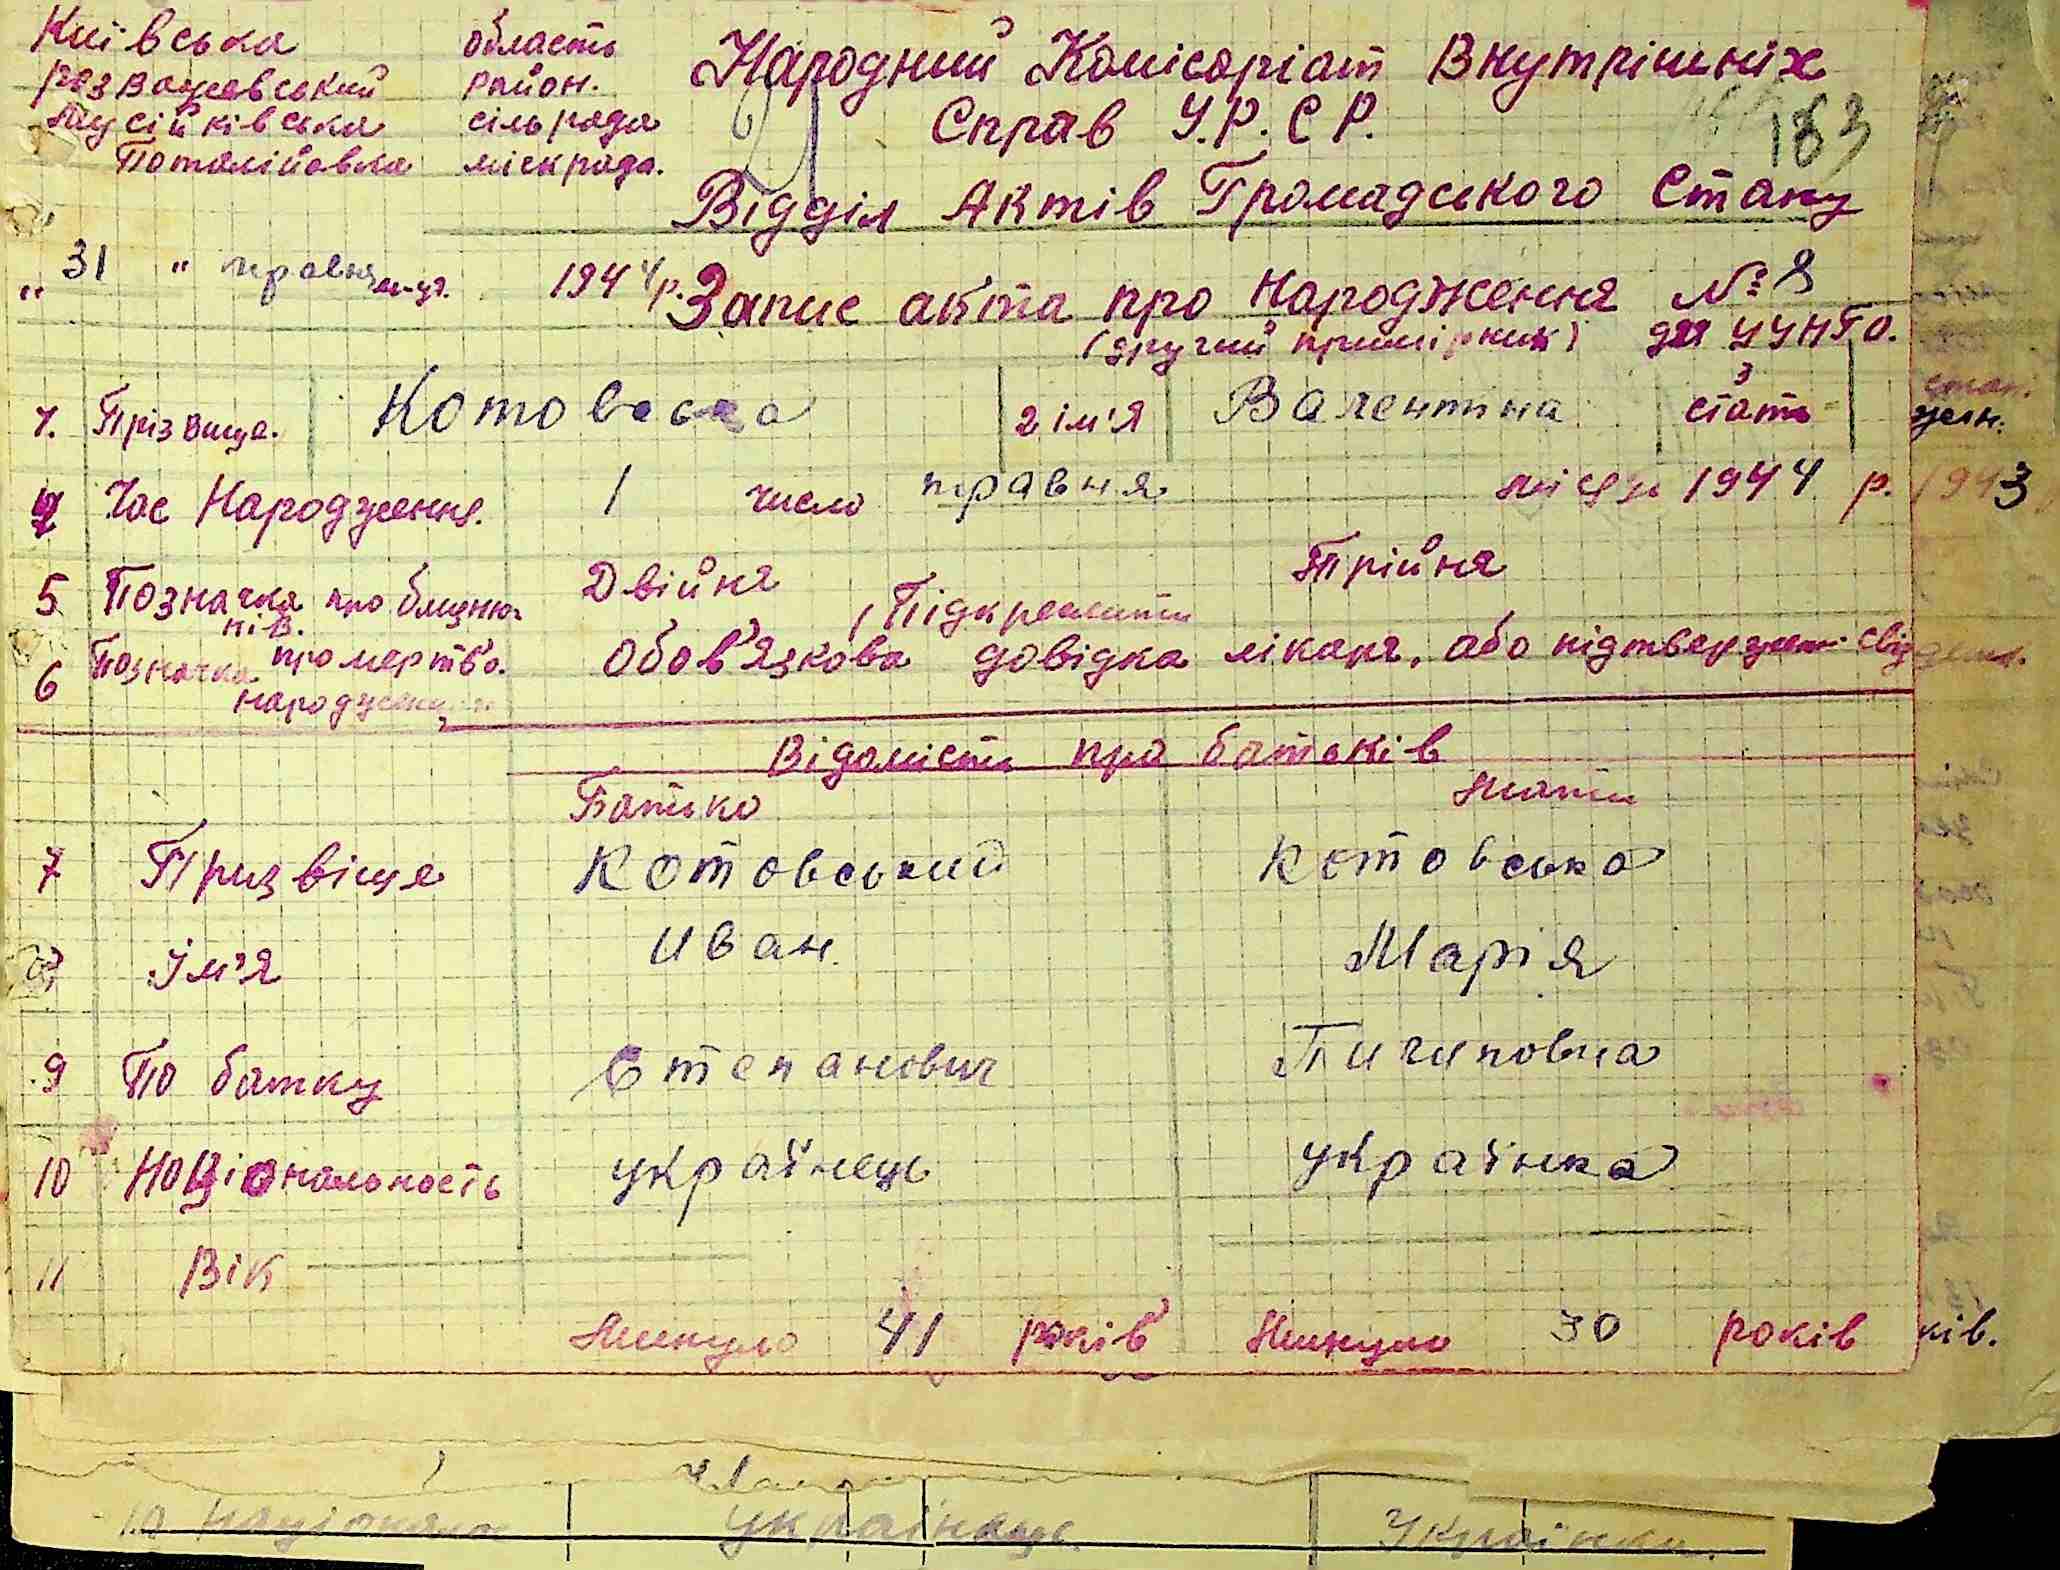 Київська область
Розважевський район.
Мусійківська сільрада
Поталіївка міскрада.
Народний Комісоріат Внутрішніх
Справ У.Р.СР.
183
Відділ Актів Громадського Стану
„31" травня м-ця. 1944р.
Запис акта про народження № 8
(другий примірник) для УУНГО.
1. Прізвища. Котовська 2 ім'я Валентина 3 стать
жін.
4 Час Народження. 1 число травня місяця 1944 р. 1943
5 Позначка про близню-
ків. Двійня (Підкреслити Трійня
6 Позначка про мертво.
народжених Обов'язкова довідка лікаря, або підтвержені свідден.
Відомісти про батьків
Батько Мати
7 Призвіще Котовський Котовська
8 Ім'я Иван. Марія
9 По батку Степанович Пичиповна
10 Національность українець українка
11 Вік
Минуло 41 років Минуло 30 років
ків.
10 Національн українець. Українка.